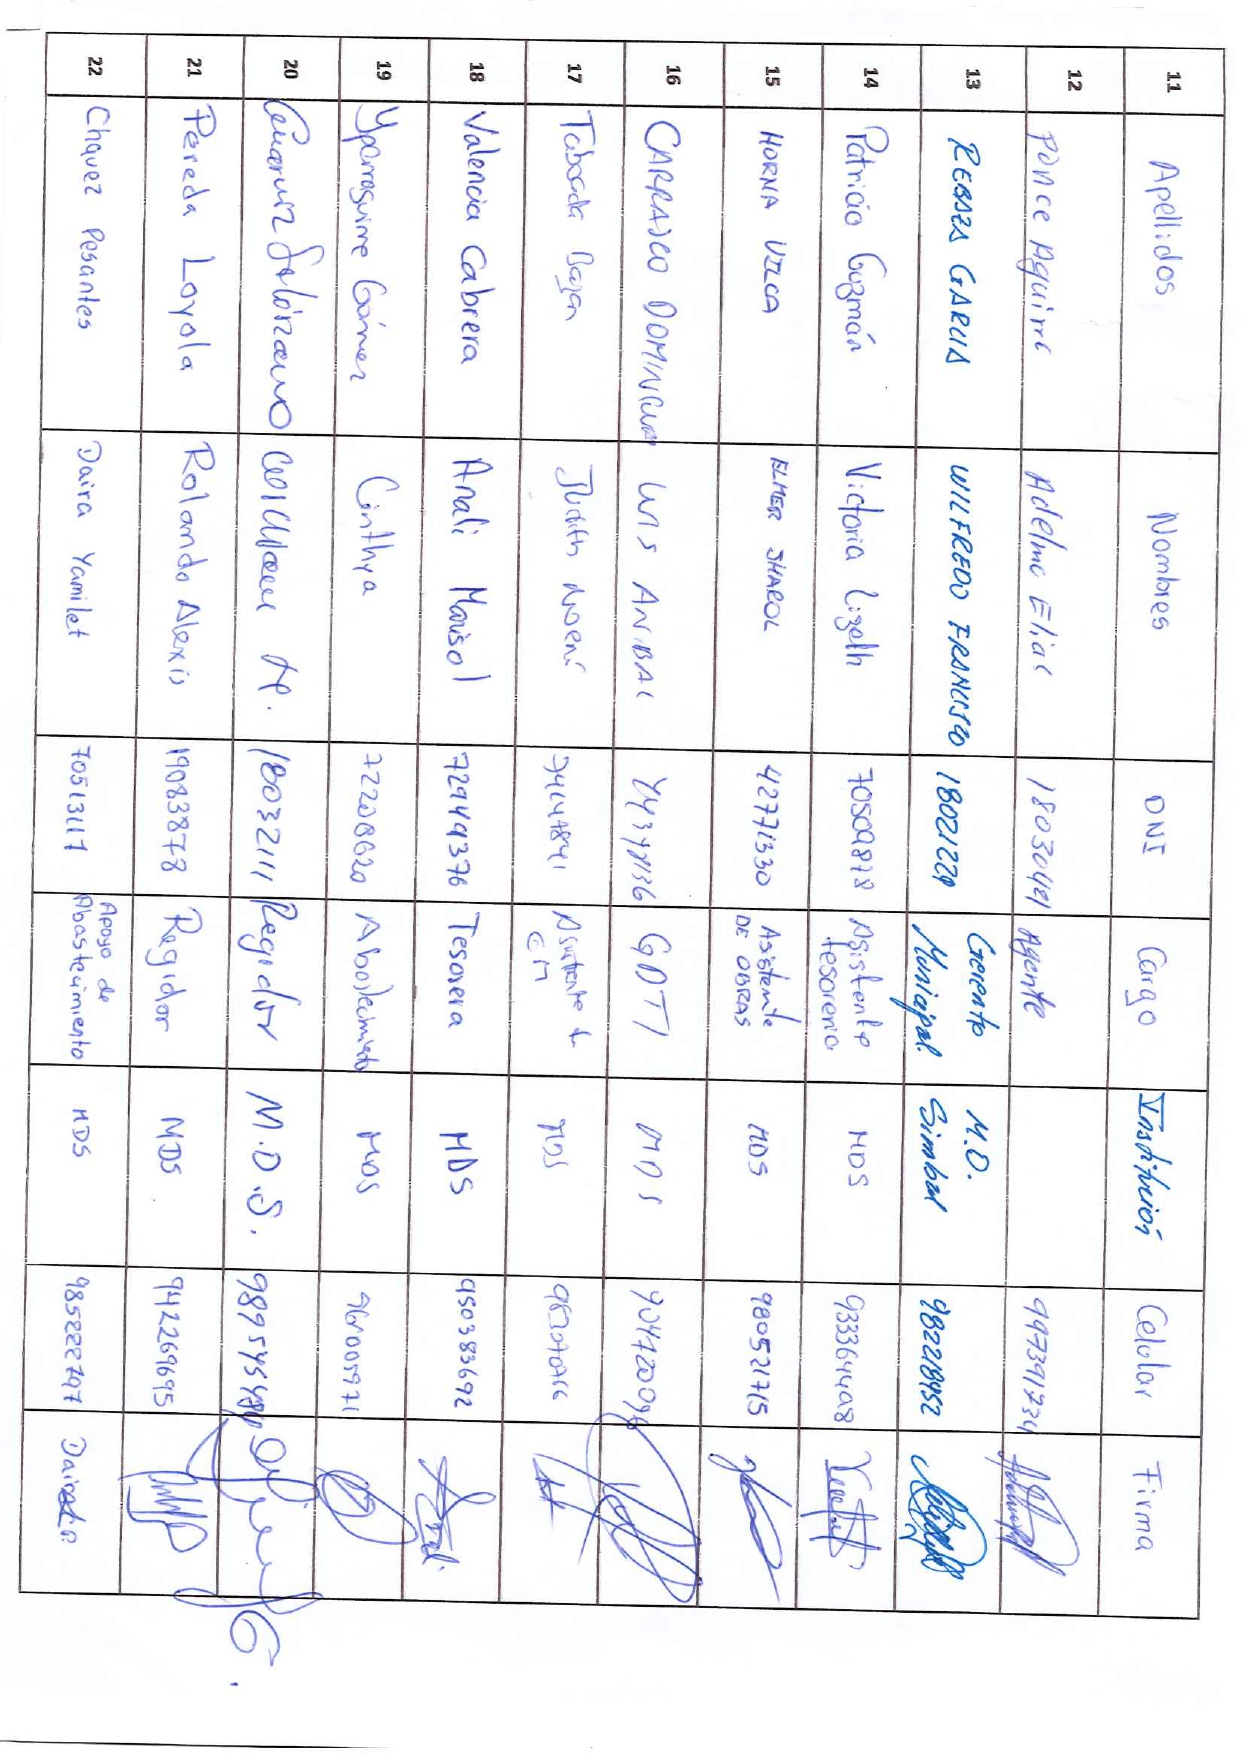 11 Apellidos Nombres DNI Cargo Institución Celular Firma
12 Ponce Aguirre Adelmo Elias 18030491 Agente 997391734
13 REBAZA GARCIA WILFREDO FRANCISCO 18021229 Gerente Municipal. M.D. Simbal 982218952
14 Patricio Guzmán Victoria Lizeth 70500878 Asistente tesoreria MDS 933364408
15 HORNA VILCA ELMER SHAROL 42771330 Asistente DE OBRAS MDS 980521715
16 CARRASCO DOMINGUEZ LUIS ANIBAL GDTI MDS
17 Taboada Bazan Judith Noemí 74147841 MDS
18 Valencia Cabrera Anali Marisol 72949376 Tesorera MDS 950383692
19 Yparraguirre Gómez Cinthya 72208620 Abastecimiento MDS
20 18032111 Regidor M.D.S.
21 Pereda Loyola Rolando Alexis 19083878 Regidor MDS 942269695
22 Chquez Pesantes Daira Yamilet 70513117 Apoyo de Abastecimiento MDS 985222797